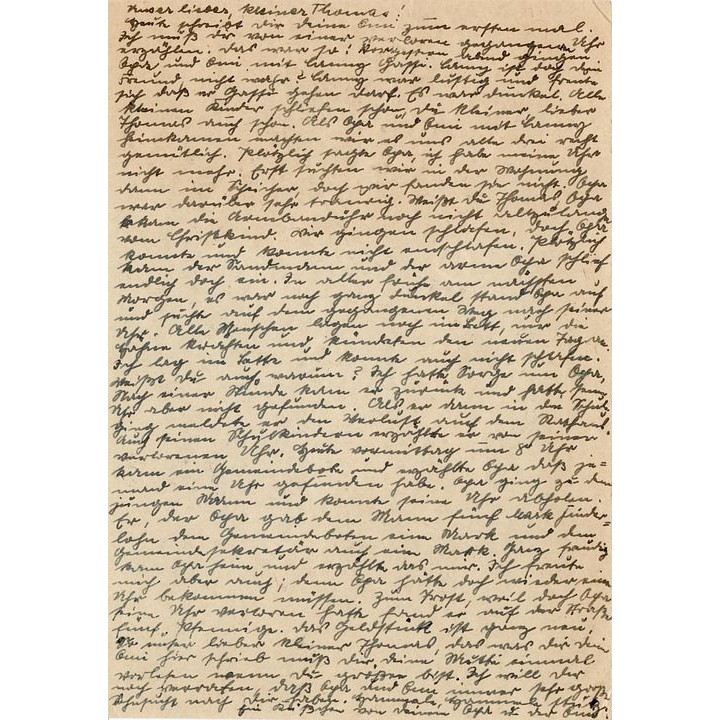 Unser lieber, kleiner Thomas!
Heute schreibt dir deine Omi zum ersten mal.
Ich muß dir von einer verloren gegangenen Uhr
erzählen. Das war so! Vorgestern Abend gingen
Opa und Omi mit Lanny Gassi. Lanny ist doch dein
Freund, nicht wahr? Lanny war lustig und freute
sich daß er Gassi gehen darf. Es war dunkel. Alle
kleinen Kinder schliefen schon, du kleiner lieber
Thomas auch schon. Als Opa und Omi mit Lanny
heimkamen machten wir es uns alle drei recht
gemütlich. Plötzlich sagte Opa, ich habe meine Uhr
nicht mehr. Erst suchten wir in der Wohnung
dann im Speicher, doch wir fanden sie nicht. Opa
war darüber sehr traurig. Weißt du Thomas, Opa
bekam die Armbanduhr noch nicht allzulange
vom Christkind. Wir gingen schlafen, doch Opa
konnte und konnte nicht einschlafen. Plötzlich
kam der Sandmann und der arme Opa schlief
endlich doch ein. In aller Frühe am nächsten
Morgen, es war noch ganz dunkel stand Opa auf
und suchte auf dem gegangenen Weg nach seiner
Uhr. Alle Menschen lagen noch im Bett, nur die
Hähne krähten und kündeten den neuen Tag an.
Ich lag im Bette und konnte auch nicht schlafen.
Weißt du auch warum? Ich hatte Sorge um Opa,
Nach einer Stunde kam er zurück und hatte seine
Uhr aber nicht gefunden. Als er dann in die Schule
ging meldete er den Verlust auch dem Rathaus.
Auch seinen Schulkindern erzählte er von seiner
verlorenen Uhr. Heute vormittag um 8 Uhr
kam ein Gemeindebote und erzählte Opa daß je-
mand eine Uhr gefunden habe. Opa ging zu dem
jungen Mann und konnte seine Uhr abholen.
Er, der Opa gab dem Mann fünf Mark Finder-
lohn dem Gemeindeboten eine Mark und dem
Gemeindesekretär auch eine Mark. Ganz freudig
kam Opa heim und erzählte das mir. Ich freute
mich aber auch; denn Opa hätte doch wieder eine
Uhr bekommen müssen. Zum Trost, weil doch Opa
eine Uhr verloren hatte fand er auf der Straße
fünf Pfennige. Das Geldstück ist ganz neu.
unser lieber kleiner Thomas, das was dir dein
Omi hier schrieb muß dir deine Mutti einmal
vorlesen wenn du größer bist. Ich will dir
noch verraten daß Opa und Omi immer sehr große
Sehnsucht nach dir haben.
Ein Küßchen von deinem Opa u. der Omi.